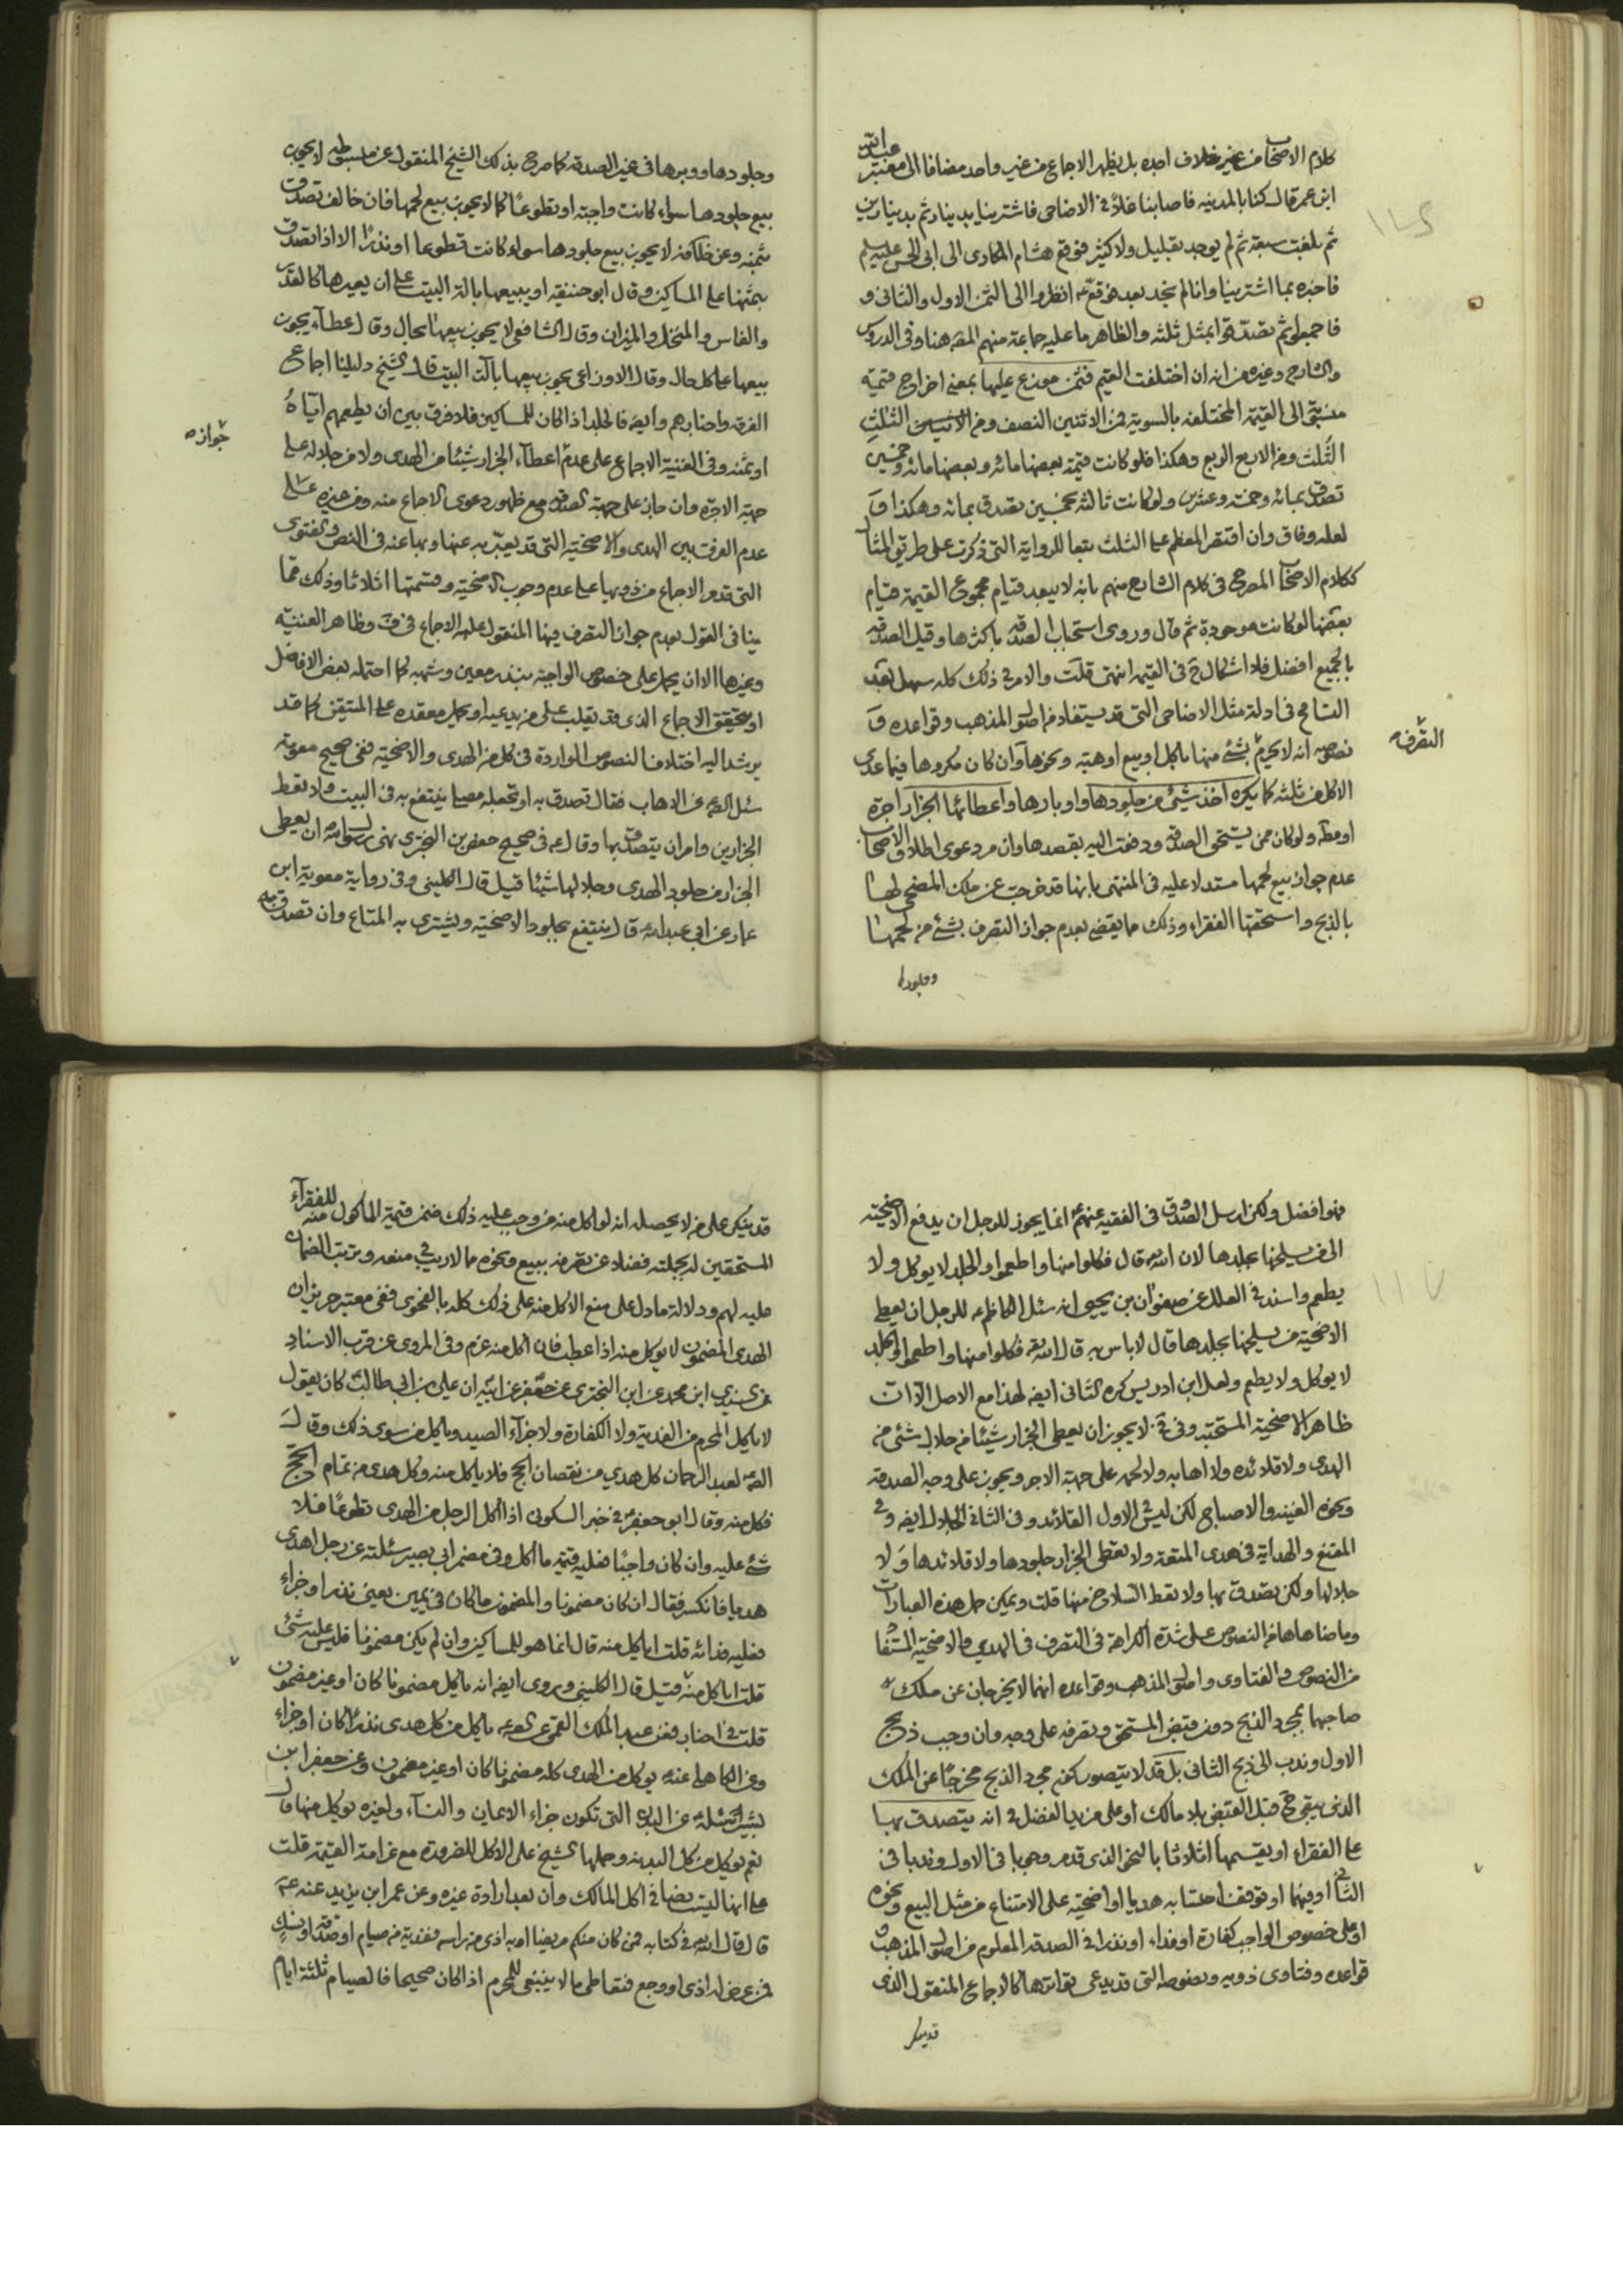 كلام الاصحاب من غير خلاف اجده بل يظهر الاجماع من غير واحد مضافا الى معتبر عبد الله
ابن عمر قال كنا بالمدينه فاصابنا غلاء في الاضاحى فاشترينا بدينار ثم بدينارين
ثم بلغت سبعة ثم لم يوجد بقليل ولا كثير فوقع هشام المكارى الى ابى الحسن عليه السلم
فاخبره بما اشترينا وانا لم نجد بعد فوقع ع انظروا الى الثمن الاول والثانى و
فاجمعوا ثم تصدقوا بمثل ثلثه والظاهر ما عليه جماعة منهم المص هنا وفى الدروس
والشارح وغيره من انه ان اختلفت القيم فثمن موزع عليها بمعنى اخراج قيمة
منسبتى الى القيمة المختلفه بالسوية فمن الاثنتين النصف ومن الثلث
الثلث ومن الاربع الربع وهكذا فلو كانت قيمة بعضها مائه وبعضها مائه وخمسين
تصدق بمائه وخمسه وعشرين ولو كانت ثالثه بخمسين تصدق بمائه وهكذا
لعله وفاق وان اقتصر المعظم على الثلث تبعا للرواية التى ذكرت على طريق المثال
ككلام الاصحاب المصرح فى كلام الشارح منهم بانه لا يبعد قيام مجموع القيمة مقام
بعضها لو كانت موجودة ثم قال وروى استحباب الصدقه باكثرها وقيل الصدقه
بالجميع افضل فلا اشكال ح فى القيمه انتهى قلت والامر فى ذلك كله سهل بعد
التسامح فى ادلة مثل الاضاحى التى قد يستفاد من اصول المذهب وقواعده و
التصرف
نصوصه انه لا يحرم بشئ منها باكل او بيع او هبة ونحوها وان كان مكروها فيما عدى
الاكل من ثلثه كما يكره اخذ شيئ من جلودها واوبارها واعطائها الجزار اجرة
او مطم ولو كان ممن يستحق الصدقه ودفعت اليه بقصدها وان مر دعوى اطلاق الاصحاب
عدم جواز بيع لحمها مستدلا عليه فى المنتهى بانها قد خرجت عن ملك المضحى لها
بالذبح واستحقها الفقراء وذلك مما يقضى بعدم جواز التصرف بشئ من لحمها
وجلودها
وجلودها ووبرها فى غير الصدقه كما صرح بذلك الشيخ المنقول عن مبسوطه لا يجوز
بيع جلودها سواء كانت واجبة او تطوعا كما لا يجوز بيع لحمها فان خالف تصدق
بثمنه وعن خلافه لا يجوز بيع جلودها سواء كانت تطوعا او نذرا الا اذا تصدق
بثمنها على المساكين وقال ابو حنيفه او يبيعها بالة البيت على ان يعيرها كالقدر
والفاس والمنخل والميزان وقال الشافعى لا يجوز بيعها بحال وقال عطاء يجوز
بيعها على كل حال وقال الاوزاعى يجوز بيعها بآلت البيت قال الشيخ دليلنا اجماع
الفرقه واخبارهم وايضه فالجلد اذا كان للمساكين فلا فرق بين ان يطعمهم اياه
جوازه
او ثمنه وفى الغنية الاجماع على عدم اعطاء الجزار شيئا من الهدى ولا من جلاله على
جهة الاجرة وان جاز على جهة الصدقه مع ظهور دعوى الاجماع منه ومن غيره على
عدم الفرق بين الهدى والاضحية التى قد يعبر به عنها وبها عنه فى النص والفتوى
التى قدم الاجماع من ذويها على عدم وجوب الاضحية وقسمتها اثلاثا وذلك مما
ينافى القول بعدم جواز التصرف فيها المنقول عليه الاجماع فى ف وظاهر الغنيه
وغيرها الا ان يحمل على خصوص الواجبة بنذر معين وشبهه كما احتمله بعض الافاضل
او يتحقق الاجماع الذى قد يقلب على من يدعيه او يحمل معقده على المتيقن كما قد
يرشد اليه اختلاف النصوص الواردة فى كل من الهدى والاضحية ففى صحيح معوية
سئل الص ع عن الاهاب فقال تصدق به او تجعله مصلى ينتفع به فى البيت ولا تعط
الجزارين وامر ان يتصدق بها وقال ع فى صحيح حفص بن البخترى نهى رسول الله ان يعطى
الجزار من جلود الهدى وجلالها شيئا قيل قال الكلينى وفى رواية معوية ابن
عمار عن ابى عبد الله ع قال ينتفع بجلود الاضحية ويشترى به المتاع وان تصدق به
فهو افضل ولكن ارسل الصدوق فى الفقيه عنهم ع انما يجوز للرجل ان يدفع الاضحية
الى من يسلخها بجلدها لان الله تع قال فكلوا منها واطعموا والجلد لا يوكل ولا
يطعم واسند فى العلل عن صفوان بن يحيى انه سئل الكاظم ع للرجل ان يعطى
الاضحية من يسلخها بجلدها قال لا باس به قال الله تع فكلوا منها واطعموا والجلد
لا يوكل ولا يطعم ولعل ابن ادريس كره الثانى ايضه لهذا مع الاصل الا ان
ظاهر الاضحية المستحبه وفى لا يجوز ان يعطى الجزار شيئا من جلال شئى من
الهدى ولا قلائده ولا اهابه ولا لحمه على جهة الاجر ويجوز على وجه الصدقه
ونحوه الغنيه والاصباح لكن ليس فى الاول القلائد وفى الثانى الجلال ايضه وفى
المقنع والهداية فى هدى المتعة ولا يعطى الجزار جلودها ولا قلائدها ولا
جلالها ولكن يتصدق بها ولا تعط السلاخ منها قلت ويمكن حمل هذه العبارات
وما ضاهاها من النصوص على شدة الكراهة فى التصرف فى الهدى والاضحية المستفاد
من النصوص والفتاوى واصول المذهب وقواعده انهما لا يخرجان عن ملك
صاحبها بمجرد الذبح دون قبض المستحق وتصرفه على وجه وان وجب ذبح
الاول وندب الى ذبح الثانى بل قد لا يتصور كون مجرد الذبح مخرجا عن الملك
الذى يبقى ح قبل القبض بلا مالك او على مزيد الفضل فى انه يتصدق بها
على الفقراء او يقسمها اثلاثا بالنحو الذى قدم وجوبا فى الاول وندبا فى
الثانى او فيهما او توقف احتسابه هديا او اضحية على الامتناع من مثل البيع ونحوه
او على خصوص الواجب كفارة او فداء او نذرا فى الصدقه المعلوم من اصول المذهب و
قواعده وفتاوى ذويه ونصوصه التى قد يدعى تواترها كالاجماع المنقول الذى
قد ينكر
قد ينكر على من لا يحصله انه لو اكل منه من وجب عليه ذلك ضمن قيمة الماكول منه للفقراء
المستحقين له بجملته فضلا عن تصرفه ببيع ونحوه مما لا ريب فى منعه وترتب الضمان
عليه لهم ودلالة ما دل على منع الاكل منه على ذلك كله بالفحوى ففى معتبر حريز ان
الهدى المضمون لا يوكل منه اذا عطب فان اكل منه غرم وفى المروى عن قرب الاسناد
عن السندى ابن محمد عن ابن البخترى عن جعفر عن ابيه ان على بن ابى طالب كان يقول
لا ياكل المحرم من الفدية ولا الكفارة ولا جزاء الصيد وياكل من سوى ذلك وقال
الص ع لعبد الرحمان كل هدي من نقصان الحج فلا ياكل منه وكل هدى من تمام الحج
فكل منه وقال ابو جعفر فى خبر السكونى اذا اكل الرجل من الهدى تطوعا فلا
شئ عليه وان كان واجبا فعليه قيمة ما اكل وفى مضمر ابى بصير سئلته عن رجل اهدى
هديا فانكسر فقال ان كان مضمونا والمضمون ما كان فى يمين يعنى نذر او جزاء
فعليه فدائه قلت اياكل منه قال انما هو للمساكين وان لم يكن مضمونا فليس عليه شئى
قلت اياكل منه قيل قال الكلينى وروى ايضه انه ياكل مضمونا كان او غير مضمون
قلت فى اخبار فعن عبد الملك القمى عن الص ع ياكل من كل هدى نذرا كان او جزاء
وعن الكاهلى عنه يوكل من الهدى كله مضمونا كان او غير مضمون وعن جعفر ابن
بشير سئلته عن البدن التى تكون جزاء الايمان والنساء ولغيره يوكل منها قال
نعم يوكل من كل البدن وحملها الشيخ على الاكل للضرورة مع غرامة القيمة قلت
على انها ليست نصا فى اكل المالك وان بعد ارادة غيره وعن عمر ابن يزيد عنه ع
قال قال الله تع فى كتابه فمن كان منكم مريضا او به اذى من راسه ففدية من صيام او صدقة او نسك
فمن عرض له اذى او وجع فتعاطى ما لا ينبغى للمحرم اذا كان صحيحا فالصيام ثلثة ايام